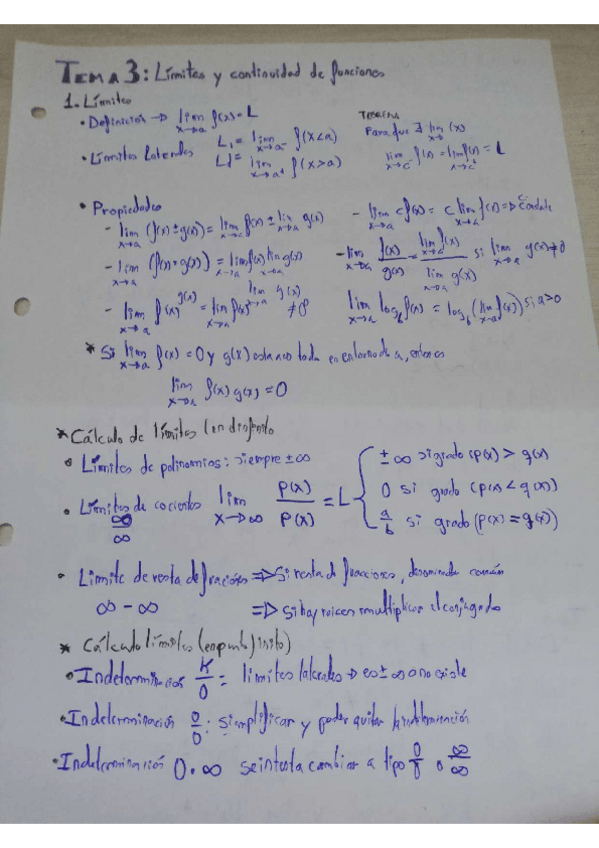 TEMA 3: Límites y continuidad de funciones
1. Límites
• Definición → lim x→a f(x) = L
• Límites laterales L₁ = lim x→a⁻ f(x<a)
L₂ = lim x→a⁺ f(x>a)
TEOREMA
Para que ∃ lim f(x)
lim x→c⁻ f(x) = lim x→c⁺ f(x) = L
• Propiedades
- lim x→a (f(x) ± g(x)) = lim x→a f(x) ± lim x→a g(x)
- lim x→a c f(x) = c lim x→a f(x) ⇒ c constante
- lim x→a (f(x) · g(x)) = lim x→a f(x) · lim x→a g(x)
- lim x→a f(x)/g(x) = lim x→a f(x) / lim x→a g(x) si lim x→a g(x) ≠ 0
- lim x→a f(x)^g(x) = lim x→a f(x)^lim x→a g(x) ≠ 0
lim x→a log_b f(x) = log_b (lim x→a f(x)) si a>0
* Si lim x→a f(x) = 0 y g(x) esta acotada en entorno de a, entonces
lim x→a f(x) g(x) = 0
* Cálculo de límites (en infinito
• Límites de polinomios: siempre ±∞
• Límites de cocientes ∞/∞ lim x→∞ P(x)/P(x) = L
±∞ si grado (p(x) > q(x)
0 si grado (p(x) < q(x))
a/b si grado (p(x) = q(x))
• Limite de resta de fracciones ⇒ Si resta de fracciones, denominador común
∞ - ∞ ⇒ si hay raices multiplicar el conjugado
* Cálculo límites (en punto finito)
• Indeterminación K/0 = límites laterales → es ±∞ o no existe
• Indeterminación 0/0: simplificar y poder quitar la indeterminación
• Indeterminación 0·∞ se intenta cambiar a tipo 0/0 o ∞/∞